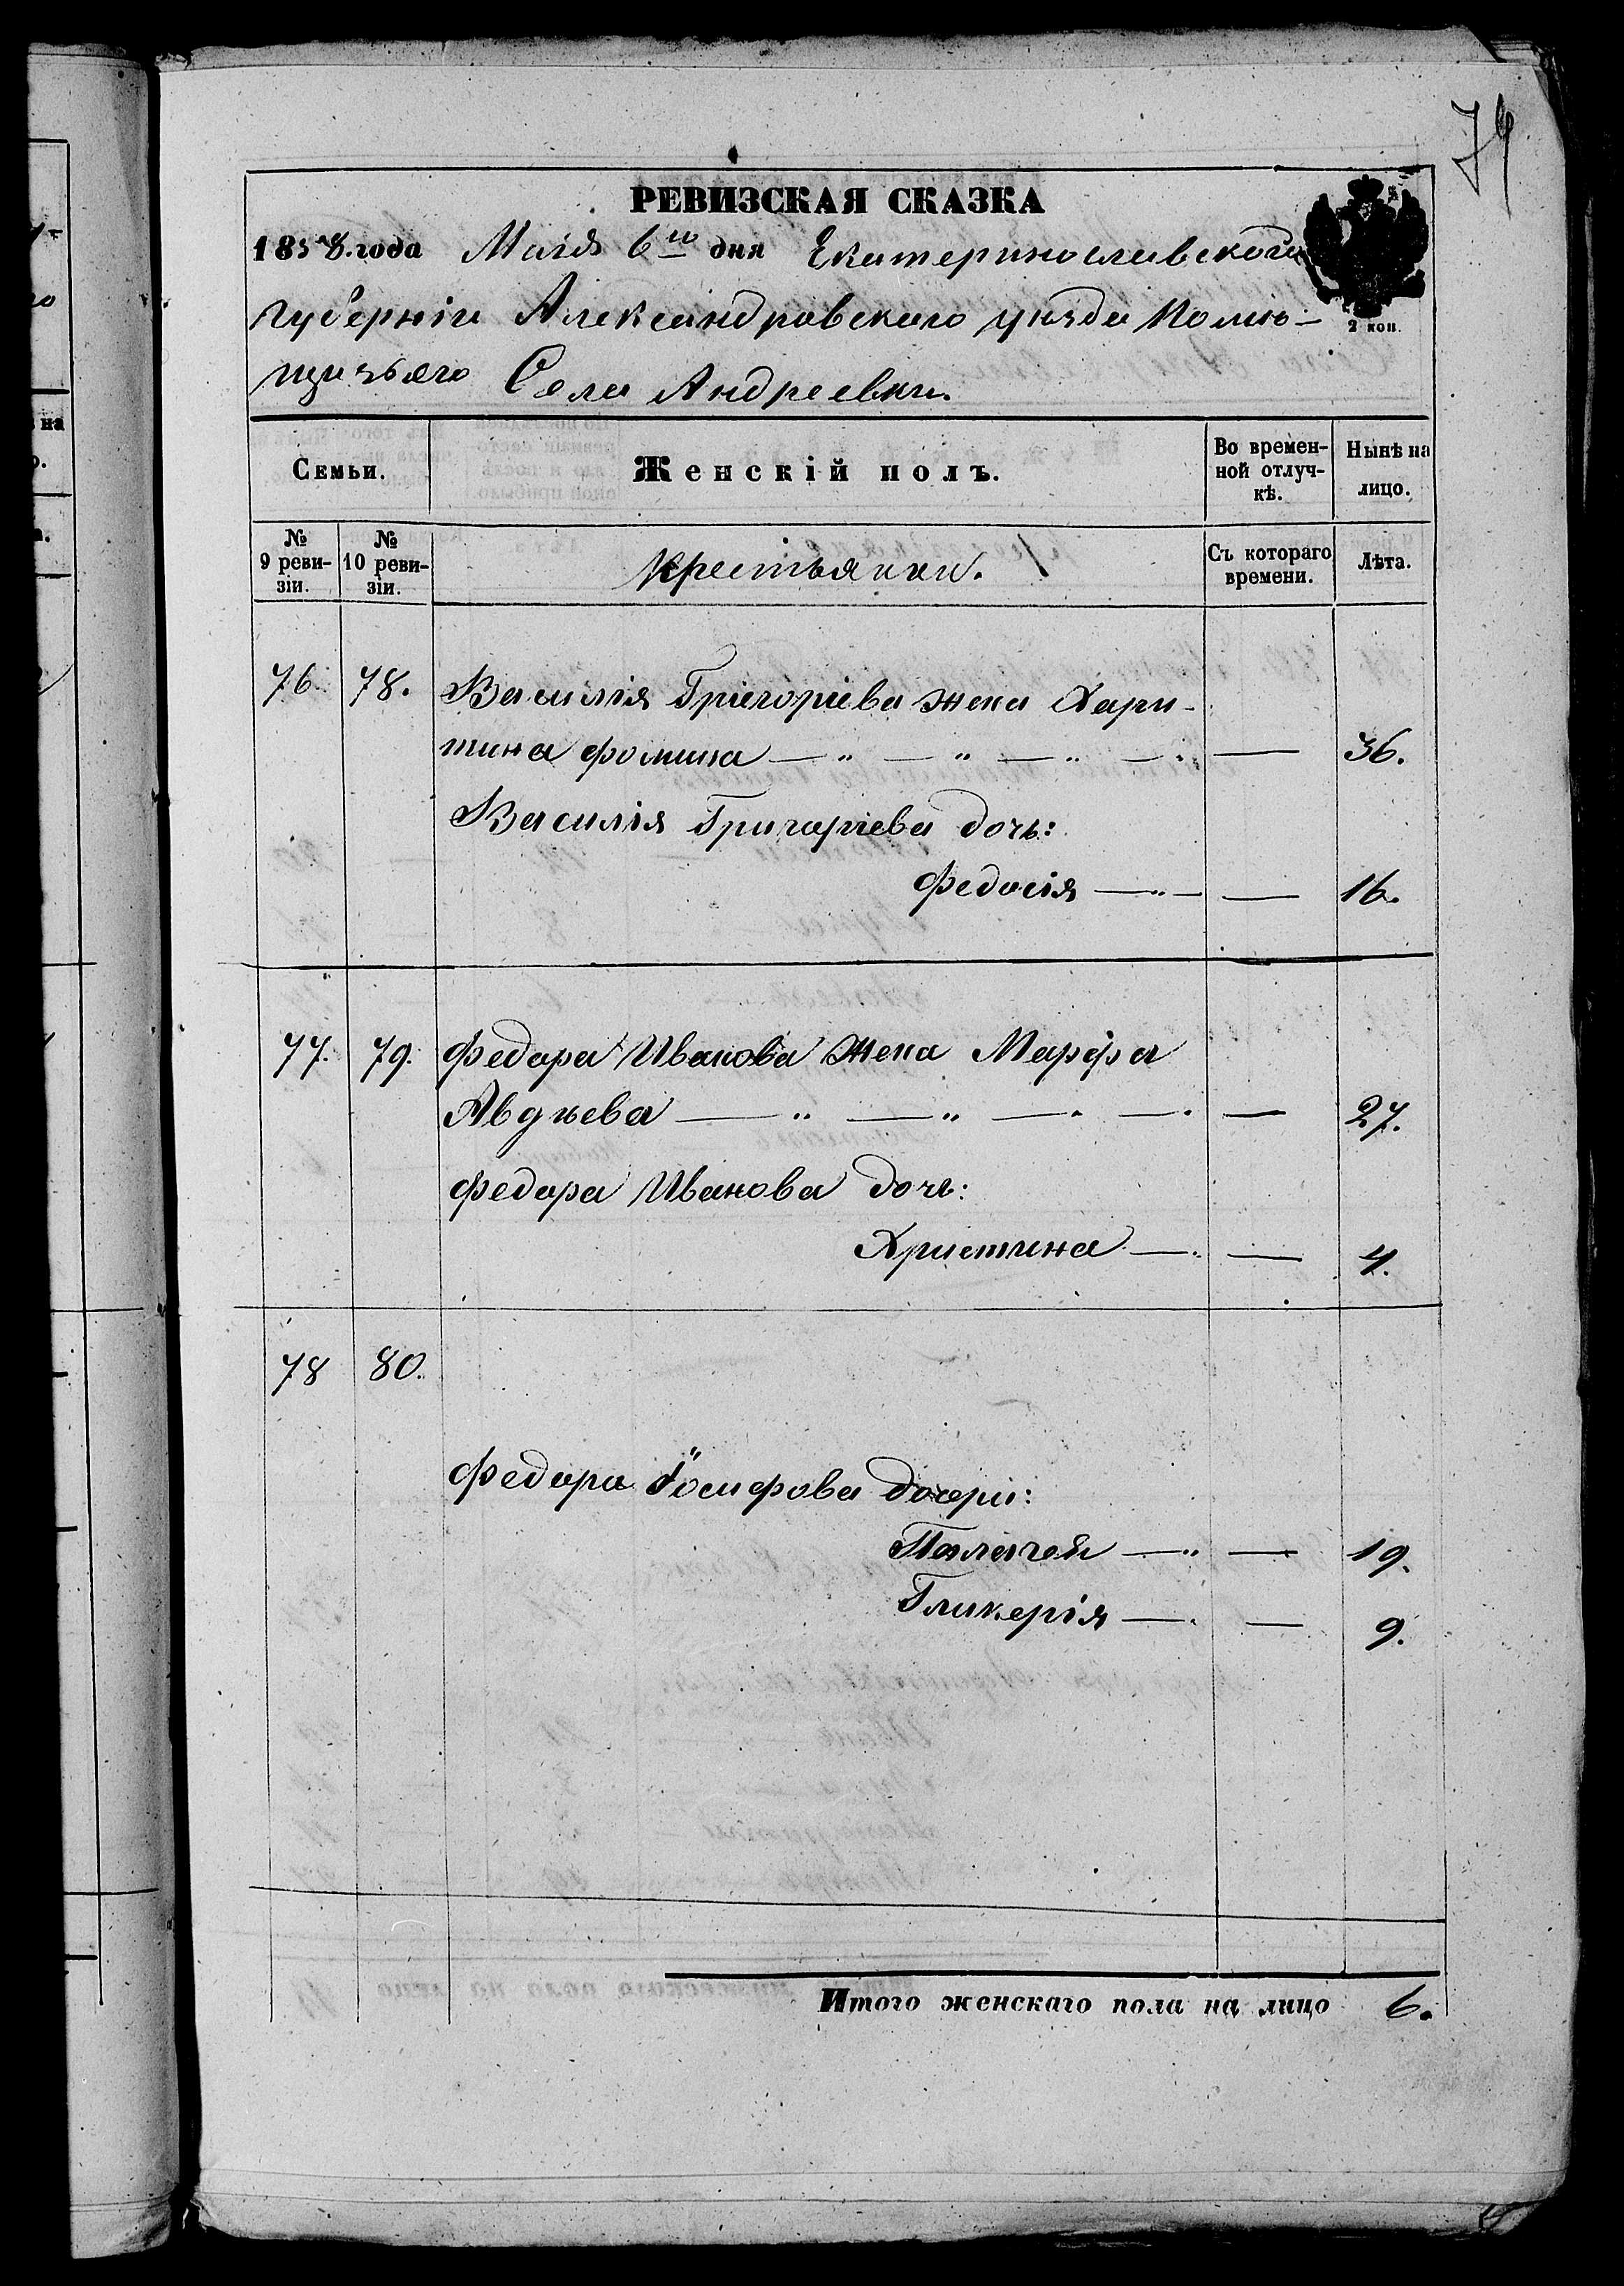 79
РЕВИЗСКАЯ СКАЗКА
1858. года Маія 6го дня Екатеринославского
2 коп.
губерніи Александровского уѣзда Помѣ-
щичьяго Села Андреевки.
Семьи. Женскій полъ. Во времен- Нынѣ на
ной отлуч- лицо.
кѣ.
№ № Крестьянки. Съ котораго Лѣта.
9 реви- 10 реви- времени.
зіи. зіи.
76. 78. Василія Григоріева жена Хари-
тина Фомина — „ — „ — „ — „ — 36.
Василія Григоріева дочь:
Федосія — „ — — 16.
77. 79. Федора Иванова жена Марфа
Авдѣева — „ — „ — „ — „ — 27.
Федора Иванова дочь:
Христина — „ — 4.
78 80.
Федора Іосифова дочери:
Палагея — „ — 19.
Гликерія — „ — 9.
Итого женскаго пола на лицо 6.